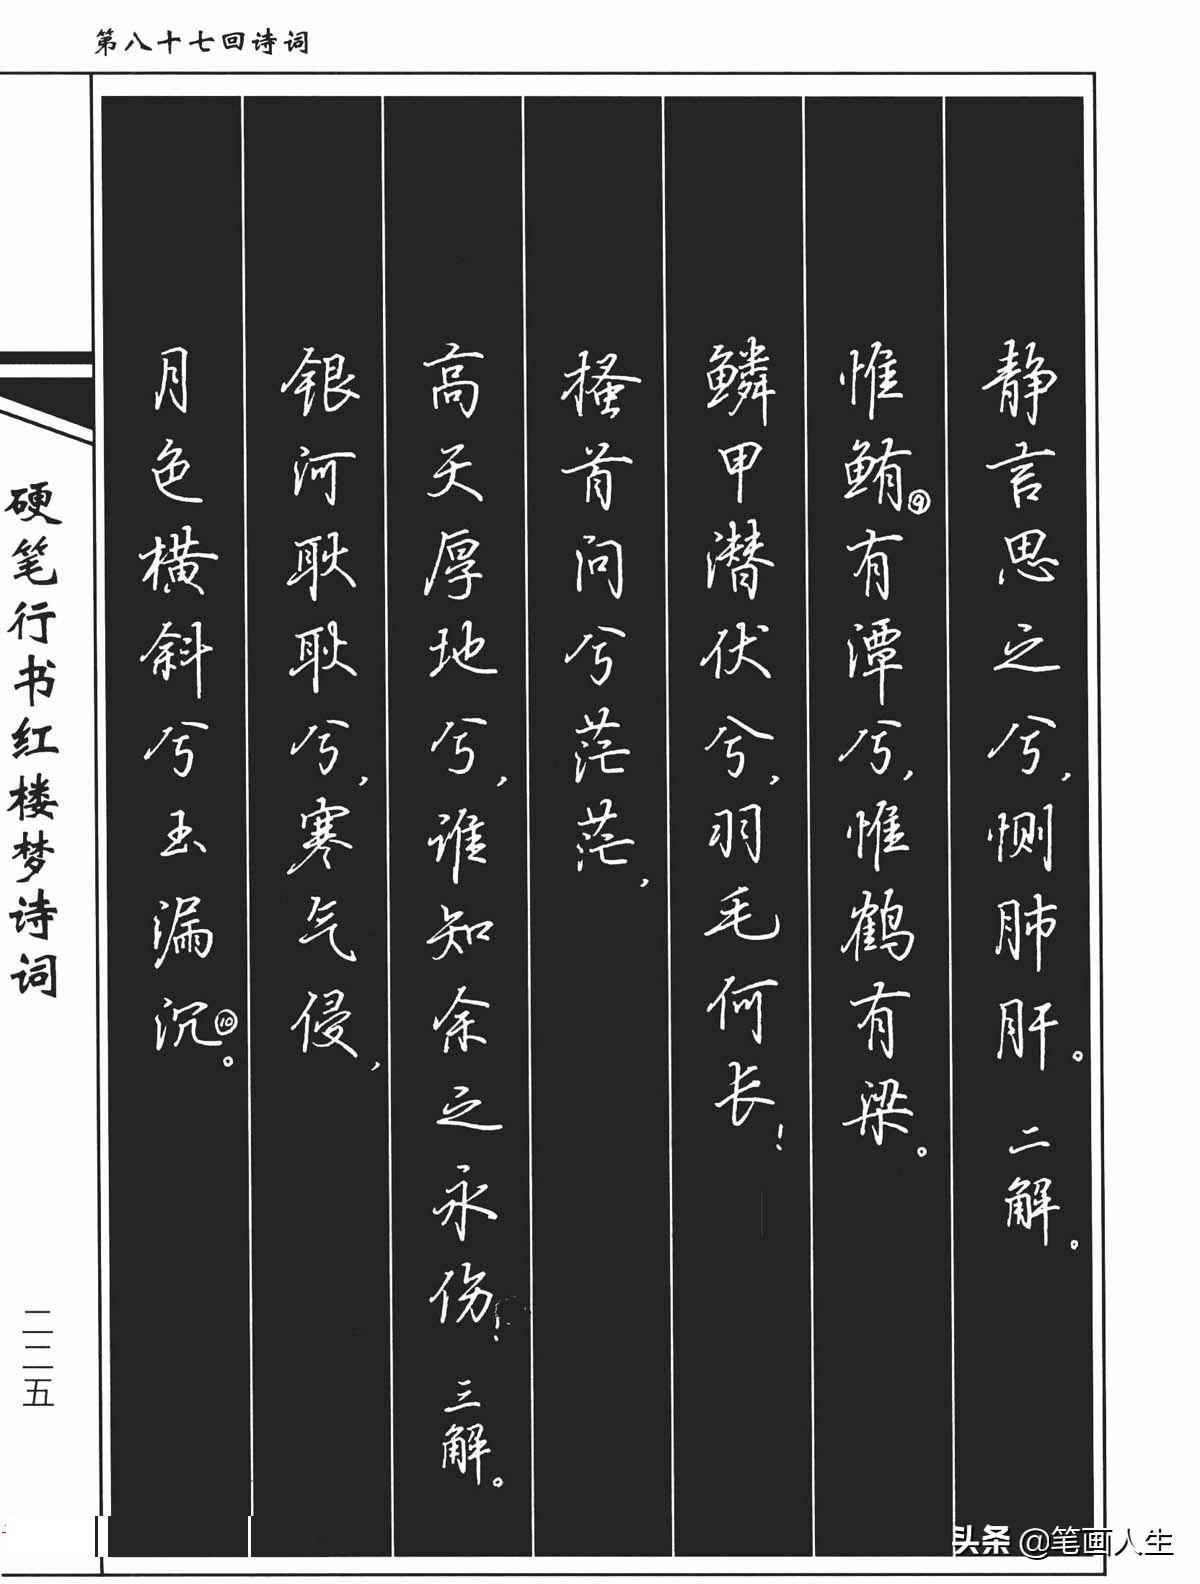 第八十七回诗词
静言思之兮，恻肺肝。二解。
惟鲔⑨有潭兮，惟鹤有梁。
鳞甲潜伏兮，羽毛何长！
搔首问兮茫茫，
高天厚地兮，谁知余之永伤！三解。
银河耿耿兮，寒气侵，
月色横斜兮玉漏沉⑩。
硬笔行书红楼梦诗词
二二五
头条 @笔画人生